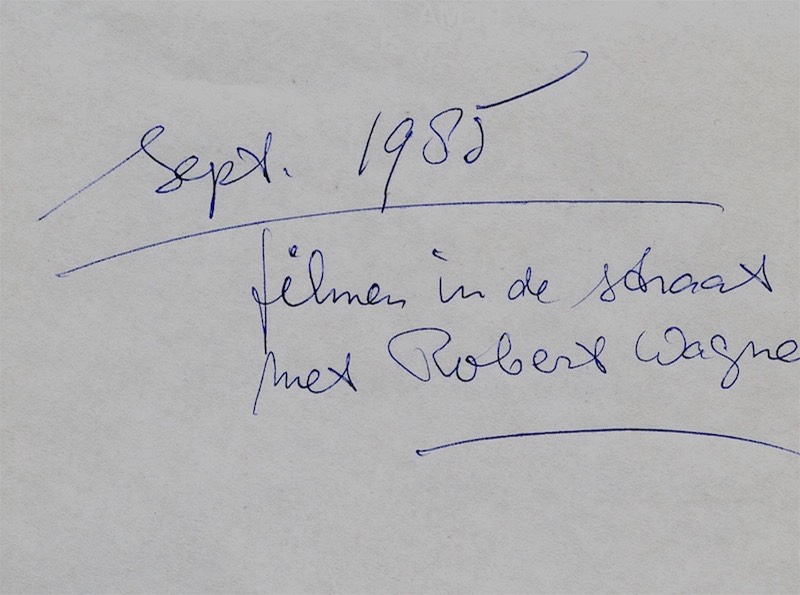 Sept. 1985
filmen in de straat
met Robert Wagne